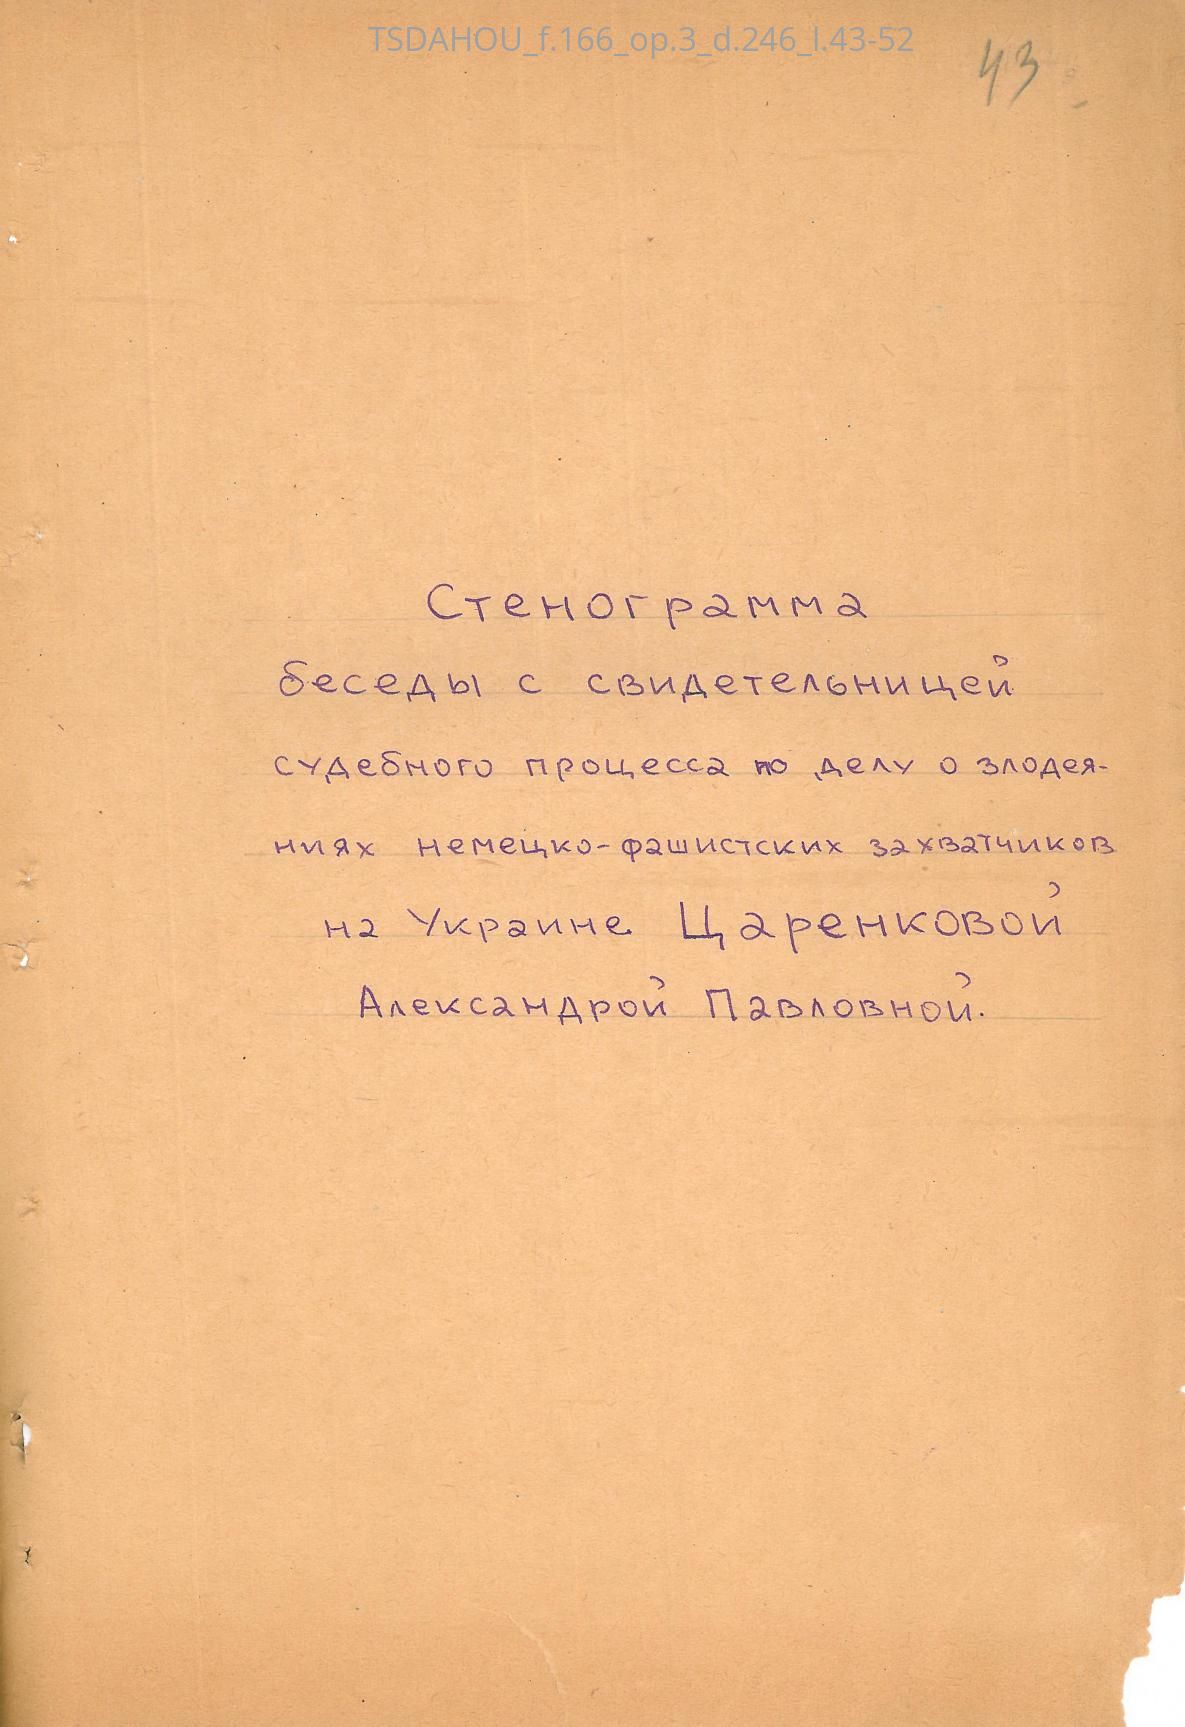 TSDAHOU_f.166_op.3_d.246_l.43-52
43
Стенограмма
беседы с свидетельницей
судебного процесса по делу о злодея-
ниях немецко-фашистских захватчиков
на Украине Царенковой
Александрой Павловной.